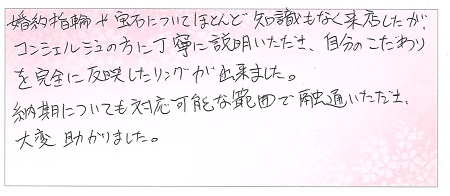 婚約指輪や宝石についてほとんど知識もなく来店したが、
コンシェルジュの方に丁寧に説明いただき、自分のこだわり
を完全に反映したリングが出来ました。
納期についても対応可能な範囲で融通いただき、
大変助かりました。